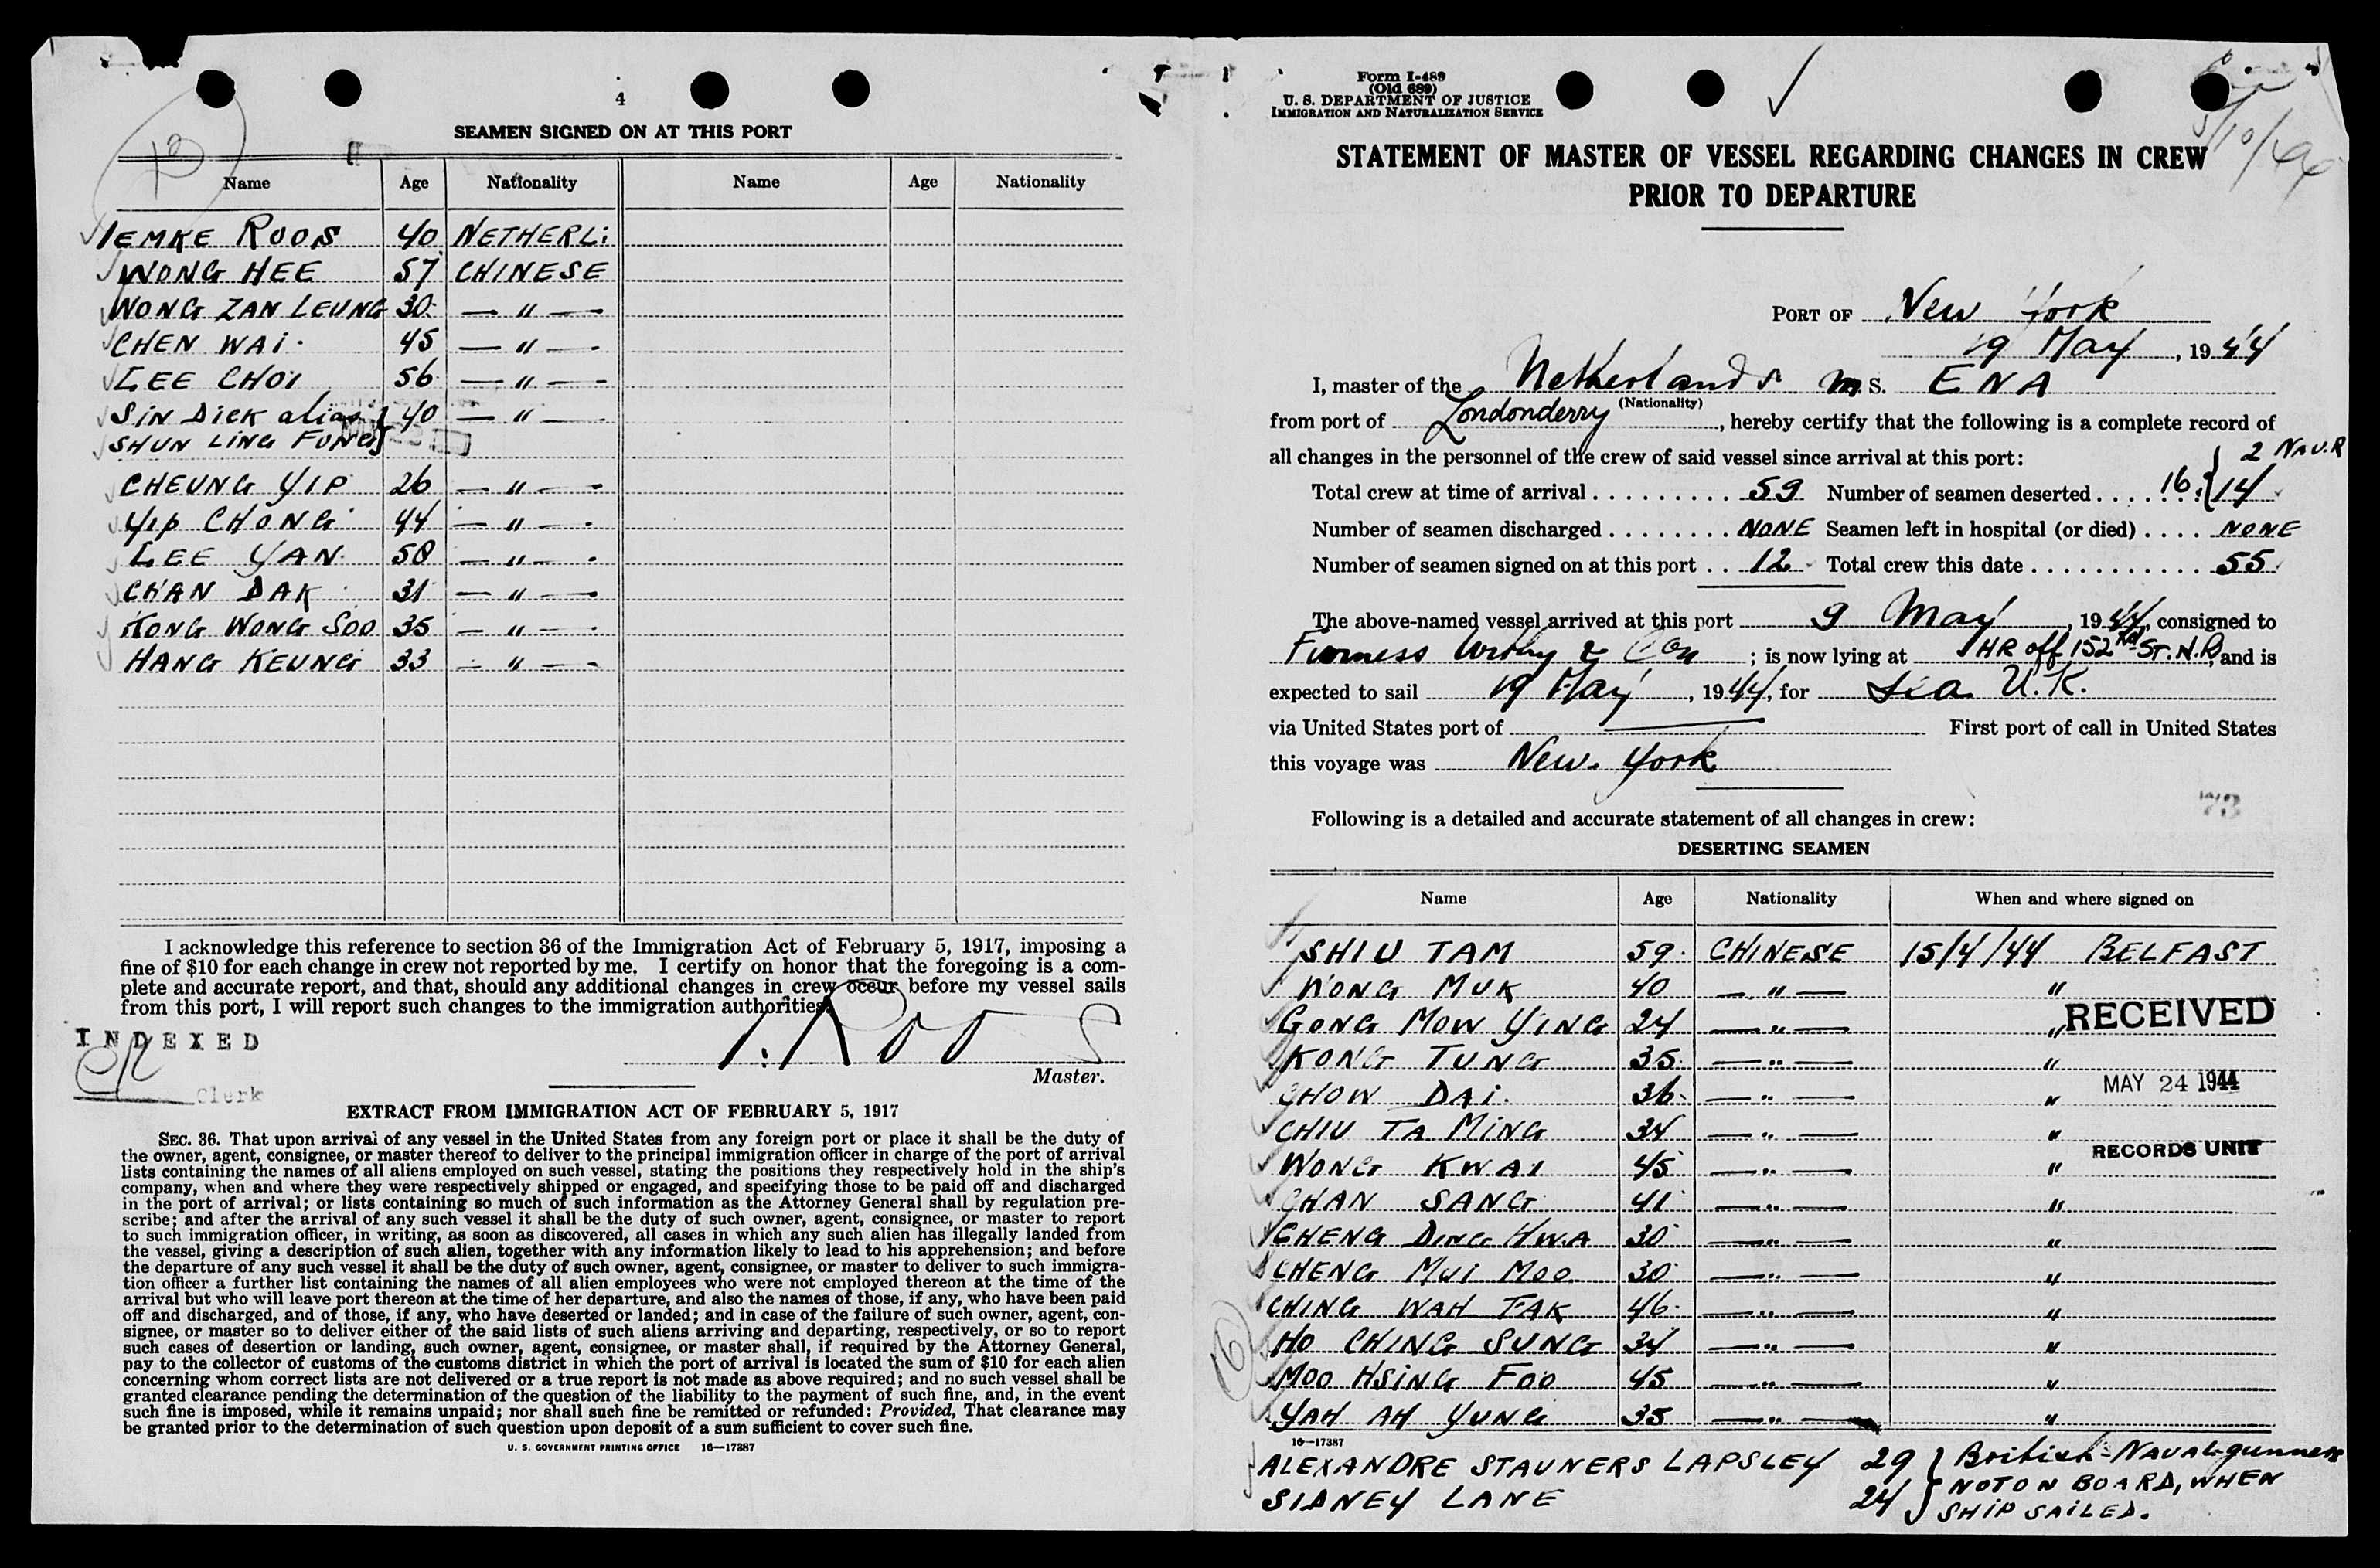 4
SEAMEN SIGNED ON AT THIS PORT
Name Age Nationality Name Age Nationality
IEMKE ROOS 40 NETHERL:
WONG HEE 57 CHINESE
WONG ZAN LEUNG 30 — " —
CHEN WAI 45 — " —
LEE CHOI 56 — " —
SIN DICK alias } 40 — " —
SHUN LING FUNG }
CHEUNG YIP 26 — " —
YIP CHONG 44 — " —
LEE YAN 58 — " —
CHAN DAK 31 — " —
KONG WONG SOO 35 — " —
HANG KEUNG 33 — " —
I acknowledge this reference to section 36 of the Immigration Act of February 5, 1917, imposing a
fine of $10 for each change in crew not reported by me. I certify on honor that the foregoing is a com-
plete and accurate report, and that, should any additional changes in crew occur before my vessel sails
from this port, I will report such changes to the immigration authorities.
I. Roos
Master.
INDEXED
Clerk
EXTRACT FROM IMMIGRATION ACT OF FEBRUARY 5, 1917
SEC. 36. That upon arrival of any vessel in the United States from any foreign port or place it shall be the duty of
the owner, agent, consignee, or master thereof to deliver to the principal immigration officer in charge of the port of arrival
lists containing the names of all aliens employed on such vessel, stating the positions they respectively hold in the ship's
company, when and where they were respectively shipped or engaged, and specifying those to be paid off and discharged
in the port of arrival; or lists containing so much of such information as the Attorney General shall by regulation pre-
scribe; and after the arrival of any such vessel it shall be the duty of such owner, agent, consignee, or master to report
to such immigration officer, in writing, as soon as discovered, all cases in which any such alien has illegally landed from
the vessel, giving a description of such alien, together with any information likely to lead to his apprehension; and before
the departure of any such vessel it shall be the duty of such owner, agent, consignee, or master to deliver to such immigra-
tion officer a further list containing the names of all alien employees who were not employed thereon at the time of the
arrival but who will leave port thereon at the time of her departure, and also the names of those, if any, who have been paid
off and discharged, and of those, if any, who have deserted or landed; and in case of the failure of such owner, agent, con-
signee, or master so to deliver either of the said lists of such aliens arriving and departing, respectively, or so to report
such cases of desertion or landing, such owner, agent, consignee, or master shall, if required by the Attorney General,
pay to the collector of customs of the customs district in which the port of arrival is located the sum of $10 for each alien
concerning whom correct lists are not delivered or a true report is not made as above required; and no such vessel shall be
granted clearance pending the determination of the question of the liability to the payment of such fine, and, in the event
such fine is imposed, while it remains unpaid; nor shall such fine be remitted or refunded: Provided, That clearance may
be granted prior to the determination of such question upon deposit of a sum sufficient to cover such fine.
U. S. GOVERNMENT PRINTING OFFICE 16—17387
Form I-489
(Old 689)
U. S. DEPARTMENT OF JUSTICE
IMMIGRATION AND NATURALIZATION SERVICE
STATEMENT OF MASTER OF VESSEL REGARDING CHANGES IN CREW
PRIOR TO DEPARTURE
PORT OF New York
19 May, 1944
I, master of the Netherlands M.S. ENA
(Nationality)
from port of Londonderry, hereby certify that the following is a complete record of
all changes in the personnel of the crew of said vessel since arrival at this port: 2 NAV.R
Total crew at time of arrival 59 Number of seamen deserted 16 { 14
Number of seamen discharged NONE Seamen left in hospital (or died) NONE
Number of seamen signed on at this port 12 Total crew this date 55
The above-named vessel arrived at this port 9 May, 1944, consigned to
Furness Withy & Con; is now lying at HR off 152nd ST. N.R, and is
expected to sail 19 May, 1944, for Sea U.K.
via United States port of —— First port of call in United States
this voyage was New York
73
Following is a detailed and accurate statement of all changes in crew:
DESERTING SEAMEN
Name Age Nationality When and where signed on
SHIU TAM 59 CHINESE 15/4/44 BELFAST
WONG MUK 40 — " — "
GONG MOW YING 24 — " — "
KONG TUNG 35 — " — "
CHOW DAI 36 — " — "
CHIU TA MING 34 — " — "
WONG KWAI 45 — " — "
CHAN SANG 41 — " — "
CHENG DING HWA 30 — " — "
CHENG MUI MOO 30 — " — "
CHING WAH TAK 46 — " — "
HO CHING SUNG 34 — " — "
MOO HSING FOO 45 — " — "
YAH AH YUNG 35 — " — "
RECEIVED
MAY 24 1944
RECORDS UNIT
16
16—17387
ALEXANDRE STAUNERS LAPSLEY 29 } British Naval gunners
SIDNEY LANE 24 } NOT ON BOARD, WHEN
SHIP SAILED.